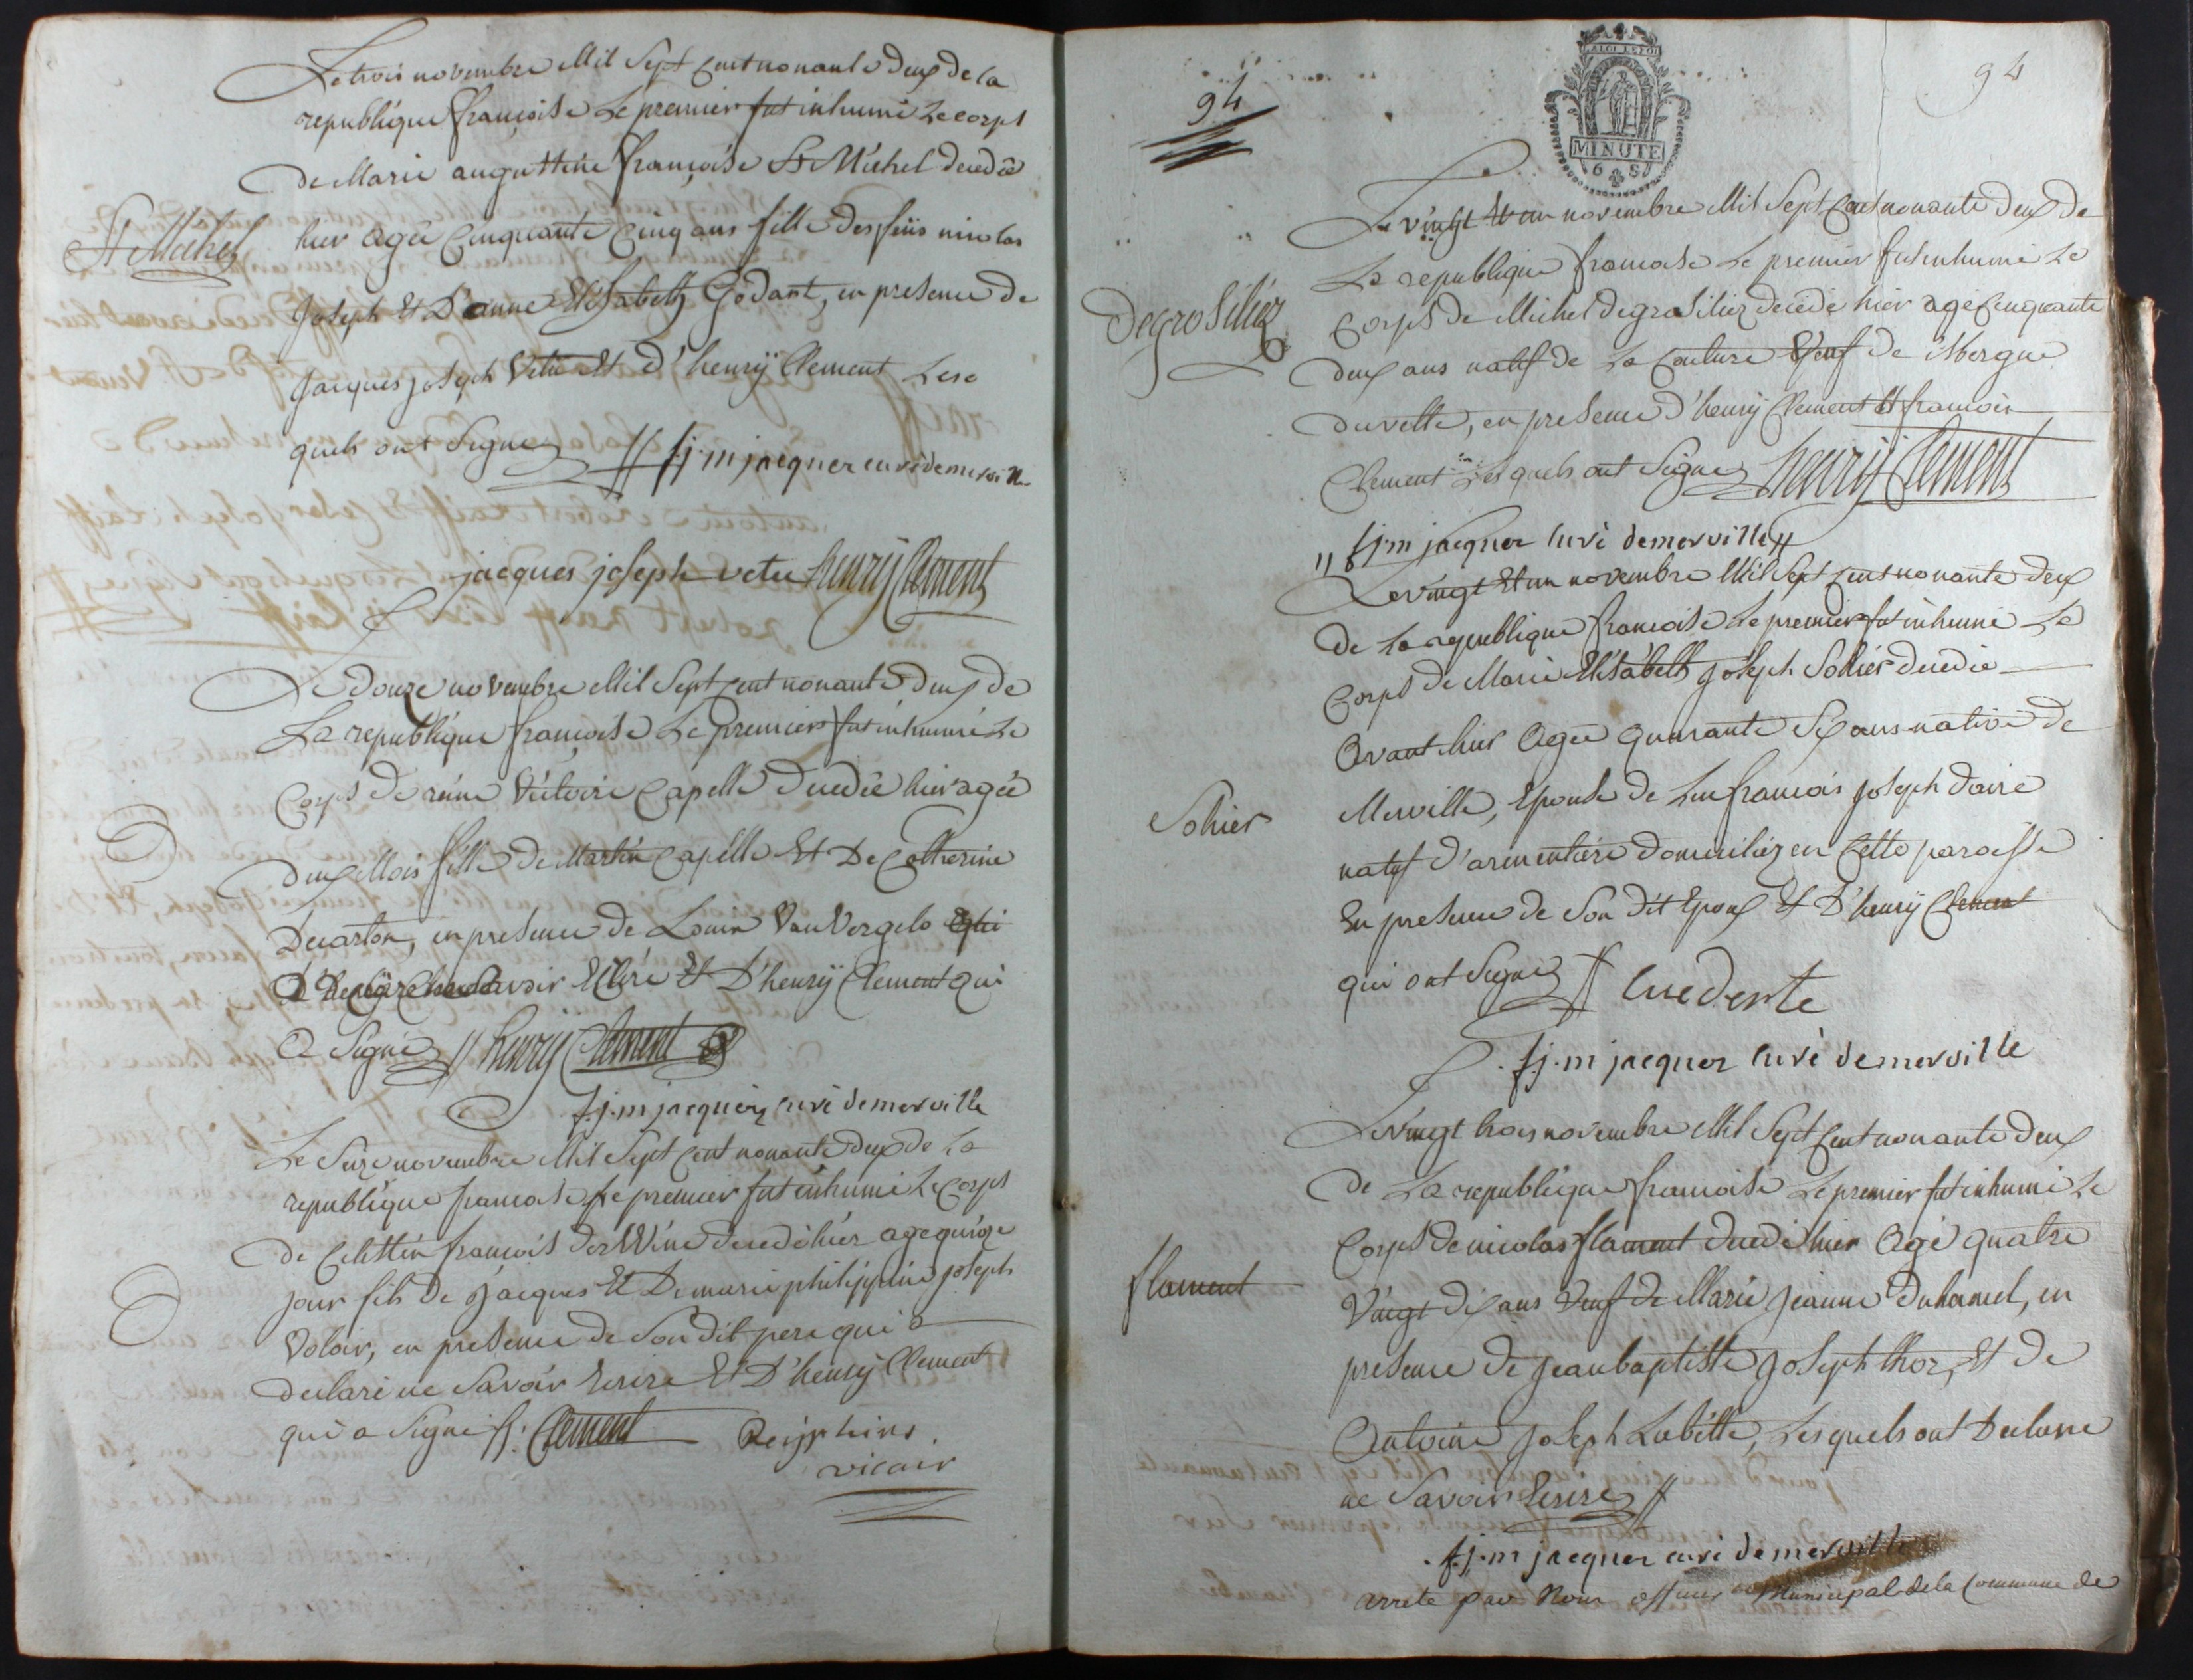 Le trois novembre Mil Sept Cent nonante deux de la
republique françoise Le premier fut inhumé Le corps
De Marie augustine françoise St Michel decedée
St Michel
hier agée Cinquante Cinq ans fille des feüs nicolas
Joseph Et D'anne Elisabeth Godart, en presence de
Jacques joseph Vetu Et d'henrÿ Clement Les
quels ont Signé // f.j.m jacquer curé de merville
jacques joseph vetu henrij Clement
Le douze novembre Mil Sept Cent nonante deux de
La republique françoise Le premier fut inhumé Le
Corps de reine Victoire Capelle decedée hier agée
deux Mois fille de Martin Capelle Et De Catherine
Decarton, en presence de Louis Van Vergelo qui
a declaré ne Savoir Ecrire Et D'henrÿ Clement qui
a Signé // henrij Clement
f.j.m jacquer curé de merville
Le Seize novembre Mil Sept Cent nonante deux de La
republique francoise Le premier fut inhumé Le Corps
de Celestin francois decedé hier agé quinze
jour fils de Jacques Et De marie philippine joseph
Voloir, en presence de Son dit pere qui a
declaré ne Savoir Ecrire Et D'henrÿ Clement
qui a Signé h: Clement
vicair
94
94
LA LOI LE ROI
MINUTE
6 S
Le vingt Et un novembre Mil Sept Cent nonante deux de
La republique francoise Le premier fut inhumé Le
Degrosiliez
Corps de Michel degrosiliez decedé hier agé Cinquante
deux ans natif de La Couture Veuf de isbergue
duvette, en presence d'henrÿ Clement Et francois
Clement Lesquels ont Signé henrij Clement
// f.j.m jacquer curé de merville //
Le vingt Et un novembre Mil Sept Cent nonante deux
de La republique francoise Le premier fut inhumé Le
Corps de Marie Elisabeth joseph Sohier decedée
avant hier agée quarante Six ans native de
Sohier
Merville, Epouse de Luc francois joseph
natif d'armentiere domiciliez en Cette paroisse
En presence de Son dit Epoux Et D'henrÿ Clement
qui ont Signé //
f.j.m jacquer curé de merville
Le vingt trois novembre Mil Sept Cent nonante deux
de La republique francoise Le premier fut inhumé Le
Corps de nicolas flament decedé hier agé quatre
flament
Vingt dix ans Veuf de Marie jeanne Duhamel, en
presence de jean baptiste joseph thor, Et de
Antoine joseph Labitte, Lesquels ont Declaré
ne Savoir Ecrire //
f.j.m jacquer curé de merville
arreté par Nous officier Municipal de la Commune de